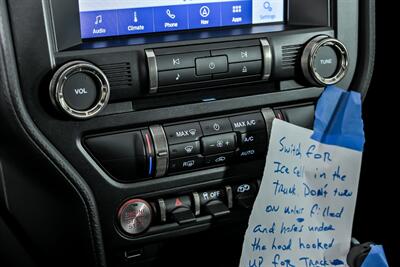 Audio Climate Phone Nav Apps Settings
VOL
TUNE
MAX
MAX A/C
A/C
R
AUTO
OFF
Switch for
Ice cell in the
TRUCK DON'T turn
on unless filled
and hoses under
the hood hooked
UP for TRACK